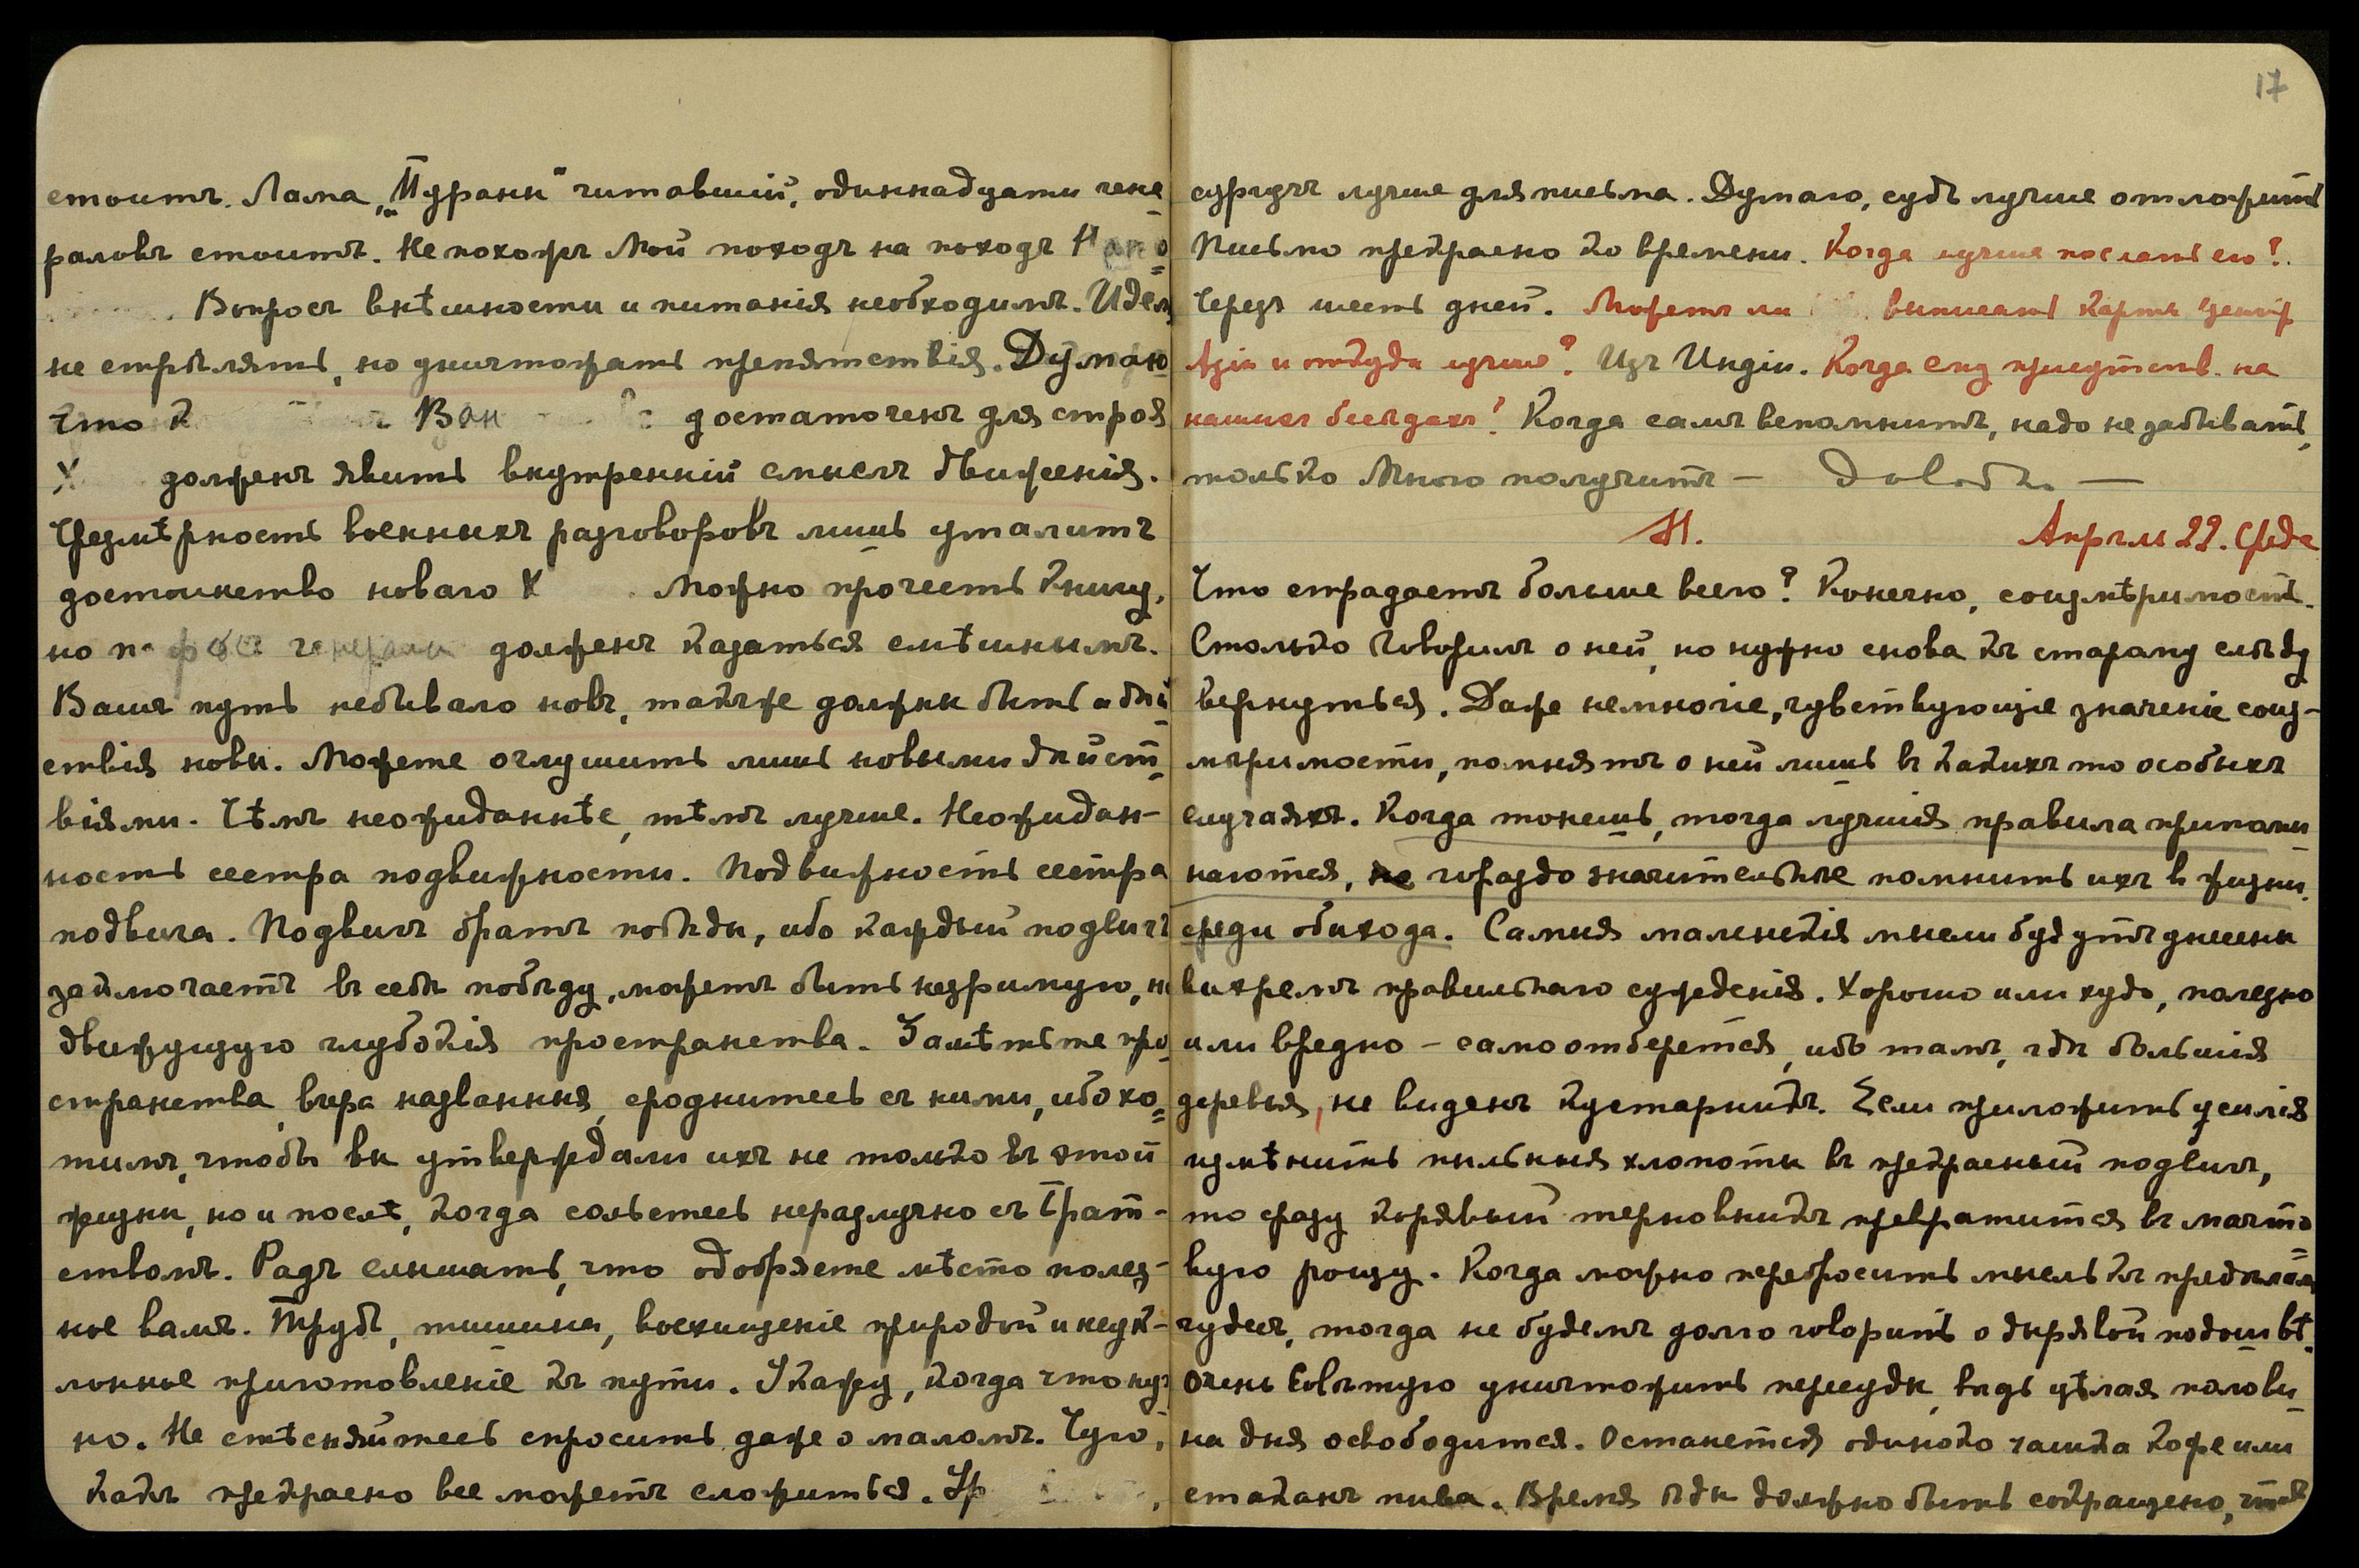 стоитъ. Лама, „Пураны" читавшій, одиннадцати гене-
раловъ стоитъ. Не похожъ Мой походъ на походъ
Вопросъ внѣшности и питанія необходимъ. Идемъ
не стрѣлять, но уничтожать препятствія. Думаю
что достаточенъ для строя
Х долженъ явить внутренній смыслъ движенія.
Чрезмѣрность военныхъ разговоровъ лишь умалитъ
достоинство новаго Х . Можно прочесть книгу,
но долженъ казаться смѣшнымъ.
Вашъ путь небывало новъ, также должны быть и дѣй-
ствія новы. Можете оглушить лишь новыми дѣйст-
віями. Чѣмъ неожиданнѣе, тѣмъ лучше. Неожидан-
ность сестра подвижности. Подвижность сестра
подвига. Подвигъ братъ побѣды, ибо каждый подвигъ
заключаетъ въ себѣ побѣду, можетъ быть незримую, но
движущую глубокія пространства. Замѣтьте про-
странства, вчера названныя, сроднитесь съ ними, ибо хо-
тимъ, чтобы вы утверждали ихъ не только въ этой
жизни, но и послѣ, когда сольетесь неразлучно съ Брат-
ствомъ. Радъ слышать, что одобряете мѣсто полез-
ное вамъ. Трудъ, тишина, восхищеніе природой и неук-
лонное приготовленіе къ пути. Укажу, когда что нуж-
но. Не стѣсняйтесь спросить даже о маломъ. Чую,
какъ прекрасно все можетъ сложиться. Ур
17
сургучъ лучше для письма. Думаю, судъ лучше отложить
Письмо прекрасно ко времени. Когда лучше послать его?
Черезъ шесть дней. Можетъ ли выписать карты Центр
Азіи и откуда лучше? Изъ Индіи. Когда ему присутств. на
нашихъ бесѣдахъ? Когда самъ вспомнитъ, надо не забывать,
только Много получитъ – Довольно –
М. Апрѣль 22. Среда
Что страдаетъ больше всего? Конечно, соизмѣримость.
Столько Говорилъ о ней, но нужно снова къ старому слѣду
вернуться. Даже немногіе, чувствующіе значеніе соиз-
мѣримости, помнятъ о ней лишь въ какихъ то особыхъ
случаяхъ. Когда тонешь, тогда лучшія правила припоми-
наются, но гораздо значительнѣе помнить ихъ в жизни
среди обихода. Самыя маленькія мысли будутъ унесены
вихремъ правильнаго сужденія. Хорошо или худо, полезно
или вредно – само отберется, ибо тамъ, гдѣ большія
деревья, не виденъ кустарникъ. Если приложить усилія
измѣнить пыльныя хлопоты въ прекрасный подвигъ,
то сразу корявый терновникъ превратится въ мачто-
вую рощу. Когда можно перебросить мысль къ предѣламъ
чудесъ, тогда не будемъ долго говорить о дырявой подошвѣ.
Очень Совѣтую уничтожить пересуды, вѣдь цѣлая полови-
на дня освободится. Останется одиноко чашка кофе или
стаканъ пива. Время ѣды должно быть сокращено, чтоб